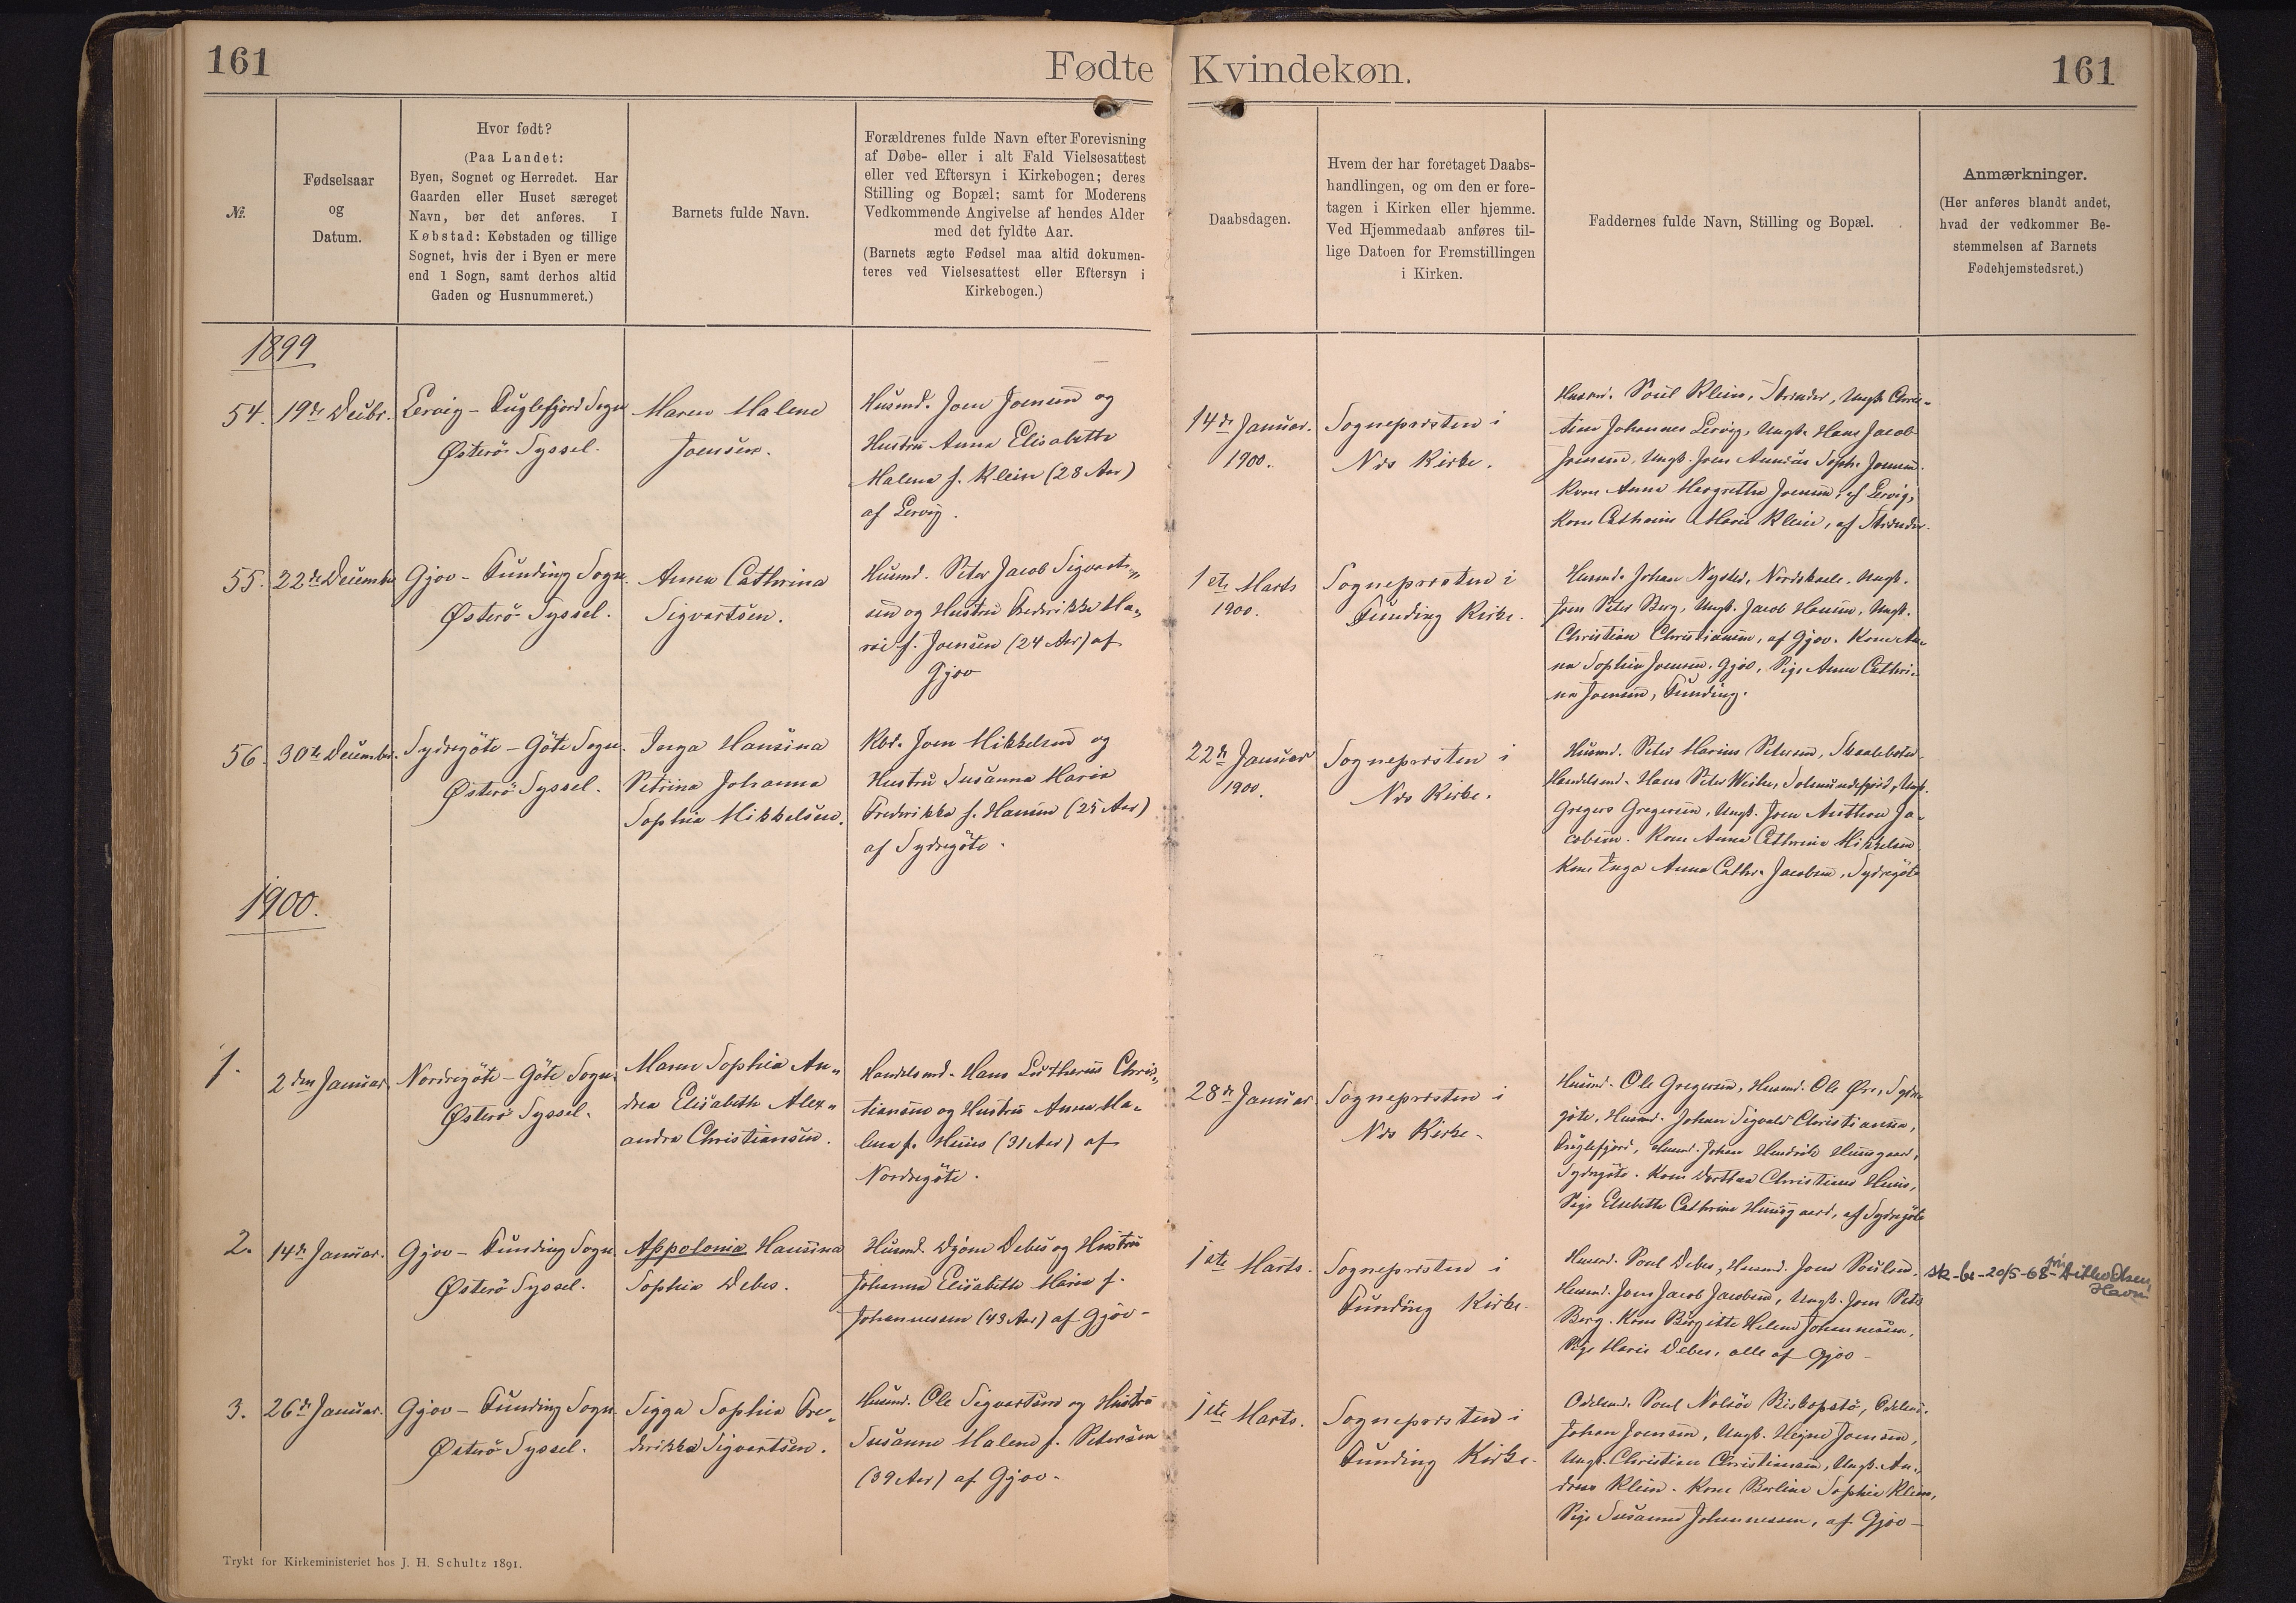 161
Fødte
Kvindekøn.
161
№.
Fødselsaar
og
Datum.
Hvor født?
(Paa Landet:
Byen, Sognet og Herredet. Har
Gaarden eller Huset særeget
Navn, bør det anføres. I
Købstad: Købstaden og tillige
Sognet, hvis der i Byen er mere
end 1 Sogn, samt derhos altid
Gaden og Husnummeret.)
Barnets fulde Navn.
Forældrenes fulde Navn efter Forevisning
af Døbe- eller i alt Fald Vielsesattest
eller ved Eftersyn i Kirkebogen; deres
Stilling og Bopæl; samt for Moderens
Vedkommende Angivelse af hendes Alder
med det fyldte Aar.
(Barnets ægte Fødsel maa altid dokumen-
teres ved Vielsesattest eller Eftersyn i
Kirkebogen.)
Daabsdagen.
Hvem der har foretaget Daabs-
handlingen, og om den er fore-
tagen i Kirken eller hjemme.
Ved Hjemmedaab anføres til-
lige Datoen for Fremstillingen
i Kirken.
Faddernes fulde Navn, Stilling og Bopæl.
Anmærkninger.
(Her anføres blandt andet,
hvad der vedkommer Be-
stemmelsen af Barnets
Fødehjemstedsret.)
1899
54.
19de Decbr.
Lervig - Fuglefjord Sogn
Østerö Syssel.
Maren Malene
Joensen.
Husmd. Joen Joensen og
Hustru Anna Elisabeth
Malena f. Klein (28 Aar)
af Lervig.
14de Januar.
1900.
Sognepresten i
Næs Kirke.
Husmd. Poul Klein, Strender, Ungk. Chris-
tian Johannes Lervig, Ungk. Hans Jacob
Joensen, Ungk. Joen
Kone Anna Margretha Joensen, af Lervig,
Kone Cathrine Marie Klein, af Strender.
55.
22de Decembr
Gjov - Funding Sogn.
Østerö Syssel.
Anna Cathrina
Sigvartsen.
Husmd. Peter Jacob Sigvart-
sen og Hustru Frederikke Ma-
rie f. Joensen (24 Aar) af
Gjov
1ste Marts
1900.
Sognepresten i
Funding Kirke.
Husmd. Johan Nysted, Nordskaale, Ungk.
Joen Peter Berg, Ungk. Jacob Hansen, Ungk.
Christian Christiansen, af Gjov. Kone An-
na Sophia Joensen, Gjov, Pige Anna Cathri-
na Joensen, Funding.
56.
30te Decembr.
Sydregöte - Göte Sogn.
Østerö Syssel.
Inga Hansina
Petrina Johanna
Sophia Mikkelsen.
Kbd. Joen Mikkelsen og
Hustru Susanna Maria
Frederikka f. Hansen (25 Aar)
af Sydregöte.
22de Januar
1900.
Sognepresten i
Næs Kirke.
Husmd. Peter Marius Petersen,
Handelsmd. Hans Peter Weihe, Solmundefjord, Ungk.
Gregers Gregersen, Ungk. Joen Anthon Ja-
cobsen. Kone Anna Cathrine Mikkelsen
Kone Inga Anna Cathr. Jacobsen, Sydregöte
1900.
1.
2den Januar
Nordregöte - Göte Sogn.
Østerö Syssel.
Maren Sophia An-
drea Elisabeth Alex-
andra Christiansen.
Handelsmd. Hans Lutherus Chris-
tiansen og Hustru Anna Ma-
lena f. Huus (31 Aar) af
Nordregöte.
28de Januar
Sognepresten i
Næs Kirke.
Husmd. Ole Gregersen, Husmd. Ole Øre, Sydre-
göte, Husmd. Johan Sigvald Christiansen,
Fuglefjord, Husmd. Johan Hendrik Huusgaard,
Sydregöte. Kone Dorthea Christiane Huus,
Pige Elsebeth Cathrine Huusgaard, af Sydregöte
2.
14de Januar.
Gjov - Funding Sogn
Østerö Syssel.
Appolonia Hansina
Sophia Debes.
Husmd. Djone Debes og Hustru
Johanna Elisabeth Maria f.
Johannessen (43 Aar) af Gjov -
1ste Marts.
Sognepresten i
Funding Kirke.
Husmd. Poul Debes, Husmd. Joen Poulsen,
Husmd. Joen Jacob Jacobsen, Ungk. Joen Peter
Berg. Kone Birgitte Helene Johannessen,
Pige Marie Debes, alle af Gjov -
sk-be-20/5-68- Ditlev Olsen,
Havn
3.
26de Januar.
Gjov - Funding Sogn
Østerö Syssel.
Sigga Sophia Fre-
derikke Sigvartsen.
Husmd. Ole Sigvartsen og Hustru
Susanne Malene f. Petersen
(39 Aar) af Gjov -
1ste Marts.
Sognepresten i
Funding Kirke.
Odelsmd. Poul Nolsøe Biskopstø, Odelsmd.
Johan Joensen, Ungk. Hejne Joensen,
Ungk. Christian Christiansen, Ungk. An-
dreas Klein. Kone Berline Sophie Klein,
Pige Susanne Johannessen, af Gjov -
Trykt for Kirkeministeriet hos J. H. Schultz 1891.